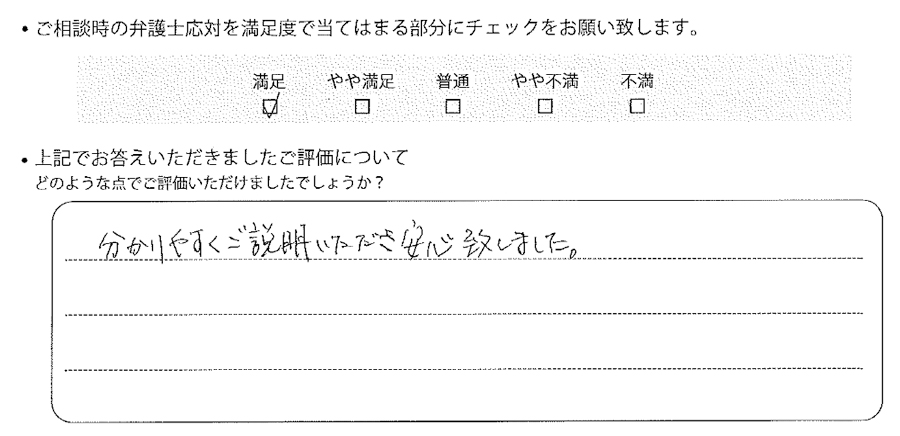 • ご相談時の弁護士応対を満足度で当てはまる部分にチェックをお願い致します。
満足 やや満足 普通 やや不満 不満
☑ □ □ □ □
• 上記でお答えいただきましたご評価について
どのような点でご評価いただけましたでしょうか？
分かりやすくご説明いただき安心致しました。